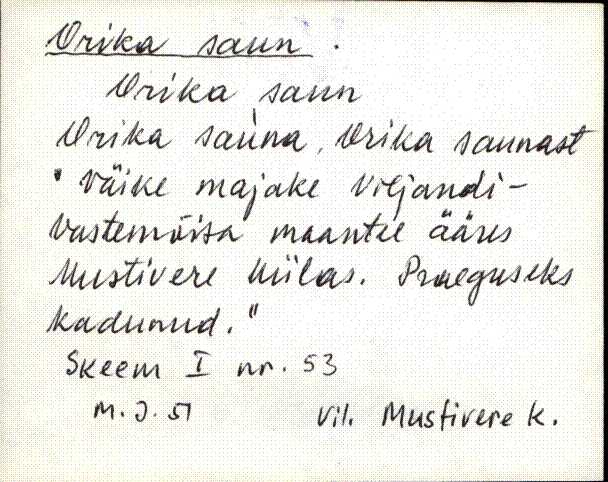 Orika saun.
Orika saun
Orika sauna, Orika saunast
"Väike majake Viljandi-
Vastemõisa maantee ääres
Mustivere külas. Praeguseks
kadunud."
Skeem I nr. 53
M. J. 51 Vil. Mustivere k.